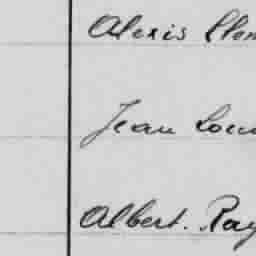 Alexis Clem
Jean Loui
Albert. Ray